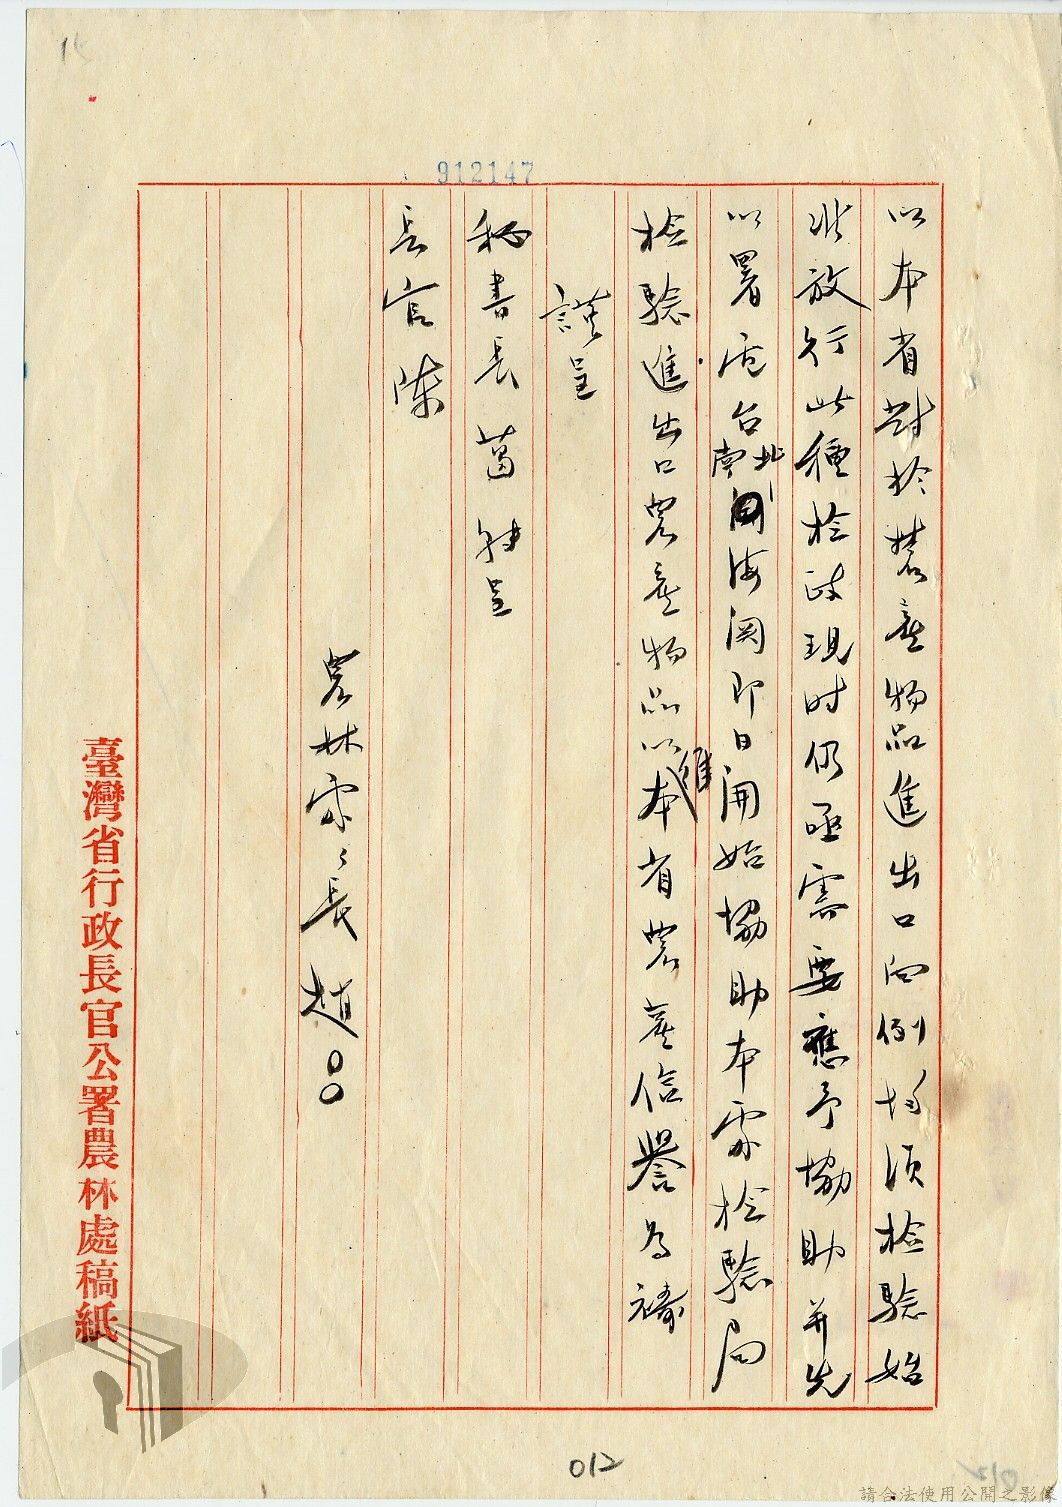 912147
以本省對於農產物品進出口向例均須檢驗始
准放行此種檢政現时仍亟需要應予協助并先
以署電台南北關海関即日開始協助本處檢驗局
檢驗進出口農產物品以維本省農產信譽為禱
謹呈
秘書長葛 轉呈
長官陳
農林處々長趙○○
臺灣省行政長官公署農林處稿紙
012
請合法使用公開之影像